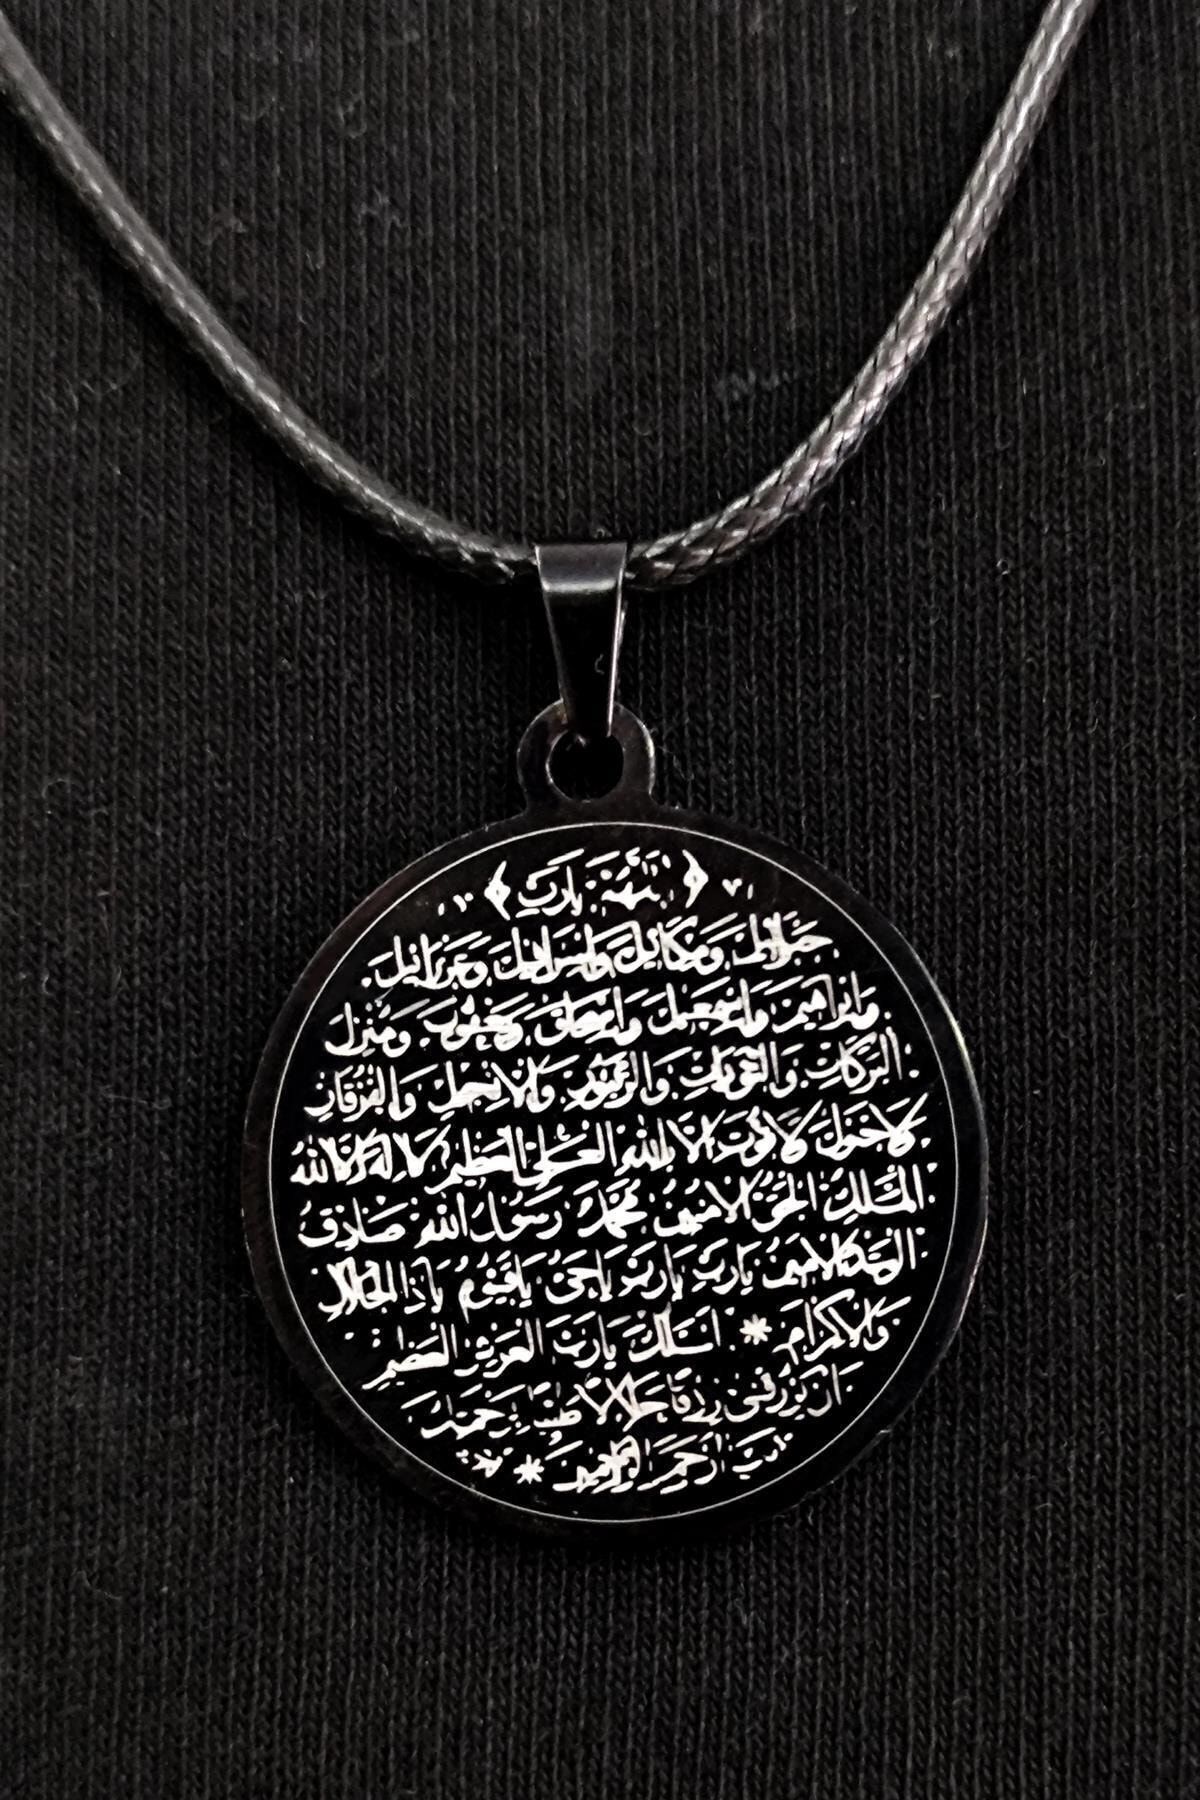 يارب
جبرائيل وميكائيل واسرافيل وعزرائيل
وابراهيم واسمعيل واسحاق ويعقوب ومنزل
البركات والتوريات والزبور والانجيل والفرقان
لاحول لا قوت الا بالله العلي العظيم لا اله الا الله
الملك الحق المبين محمد رسول الله صادق
الوعد الامين يارب يارب ياحي ياقيوم ياذا الجلال
والاكرام * اسئلك يارب العرش العظيم
ان يرزقني رزقا حلالا طيبا برحمتك
يا ارحم الراحمين *